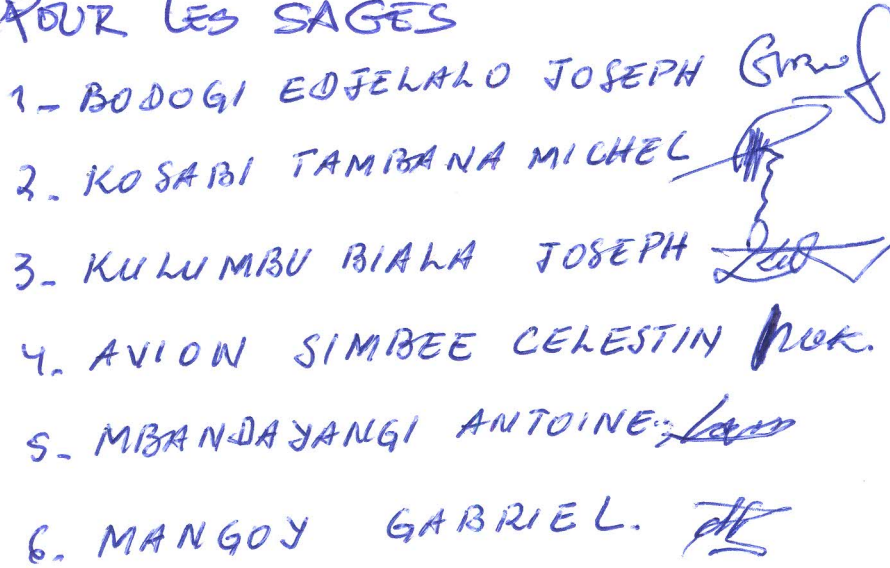 POUR LES SAGES
1- BODOGI EDJELALO JOSEPH
2. KOSABI TAMBANA MICHEL
3- KULUMBU BIALA JOSEPH
4. AVION SIMBEE CELESTIN
5- MBANDAYANGI ANTOINE
6. MANGOY GABRIEL.